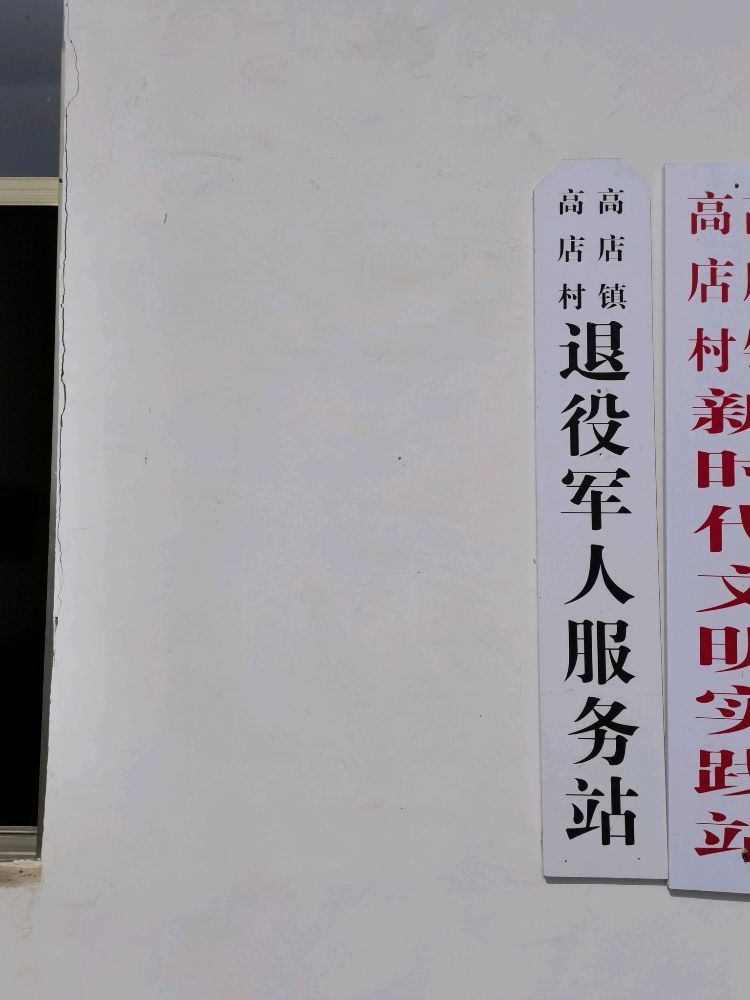 高店镇
高店村
退役军人服务站
高店村
新时代文明实践站